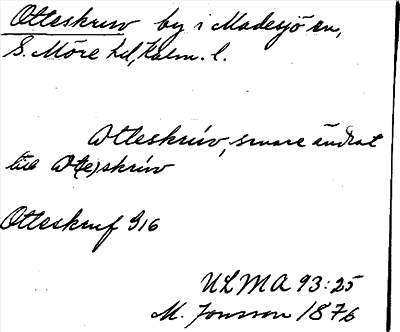 Otteskruv by i Madesjö sn,
S. Möre hd, Kalm. l.
Otteskrúv, snare ändrat
till Ott(e)skrúv
Otteskruf 916
ULMA 93:25
M. Jonsson 1876